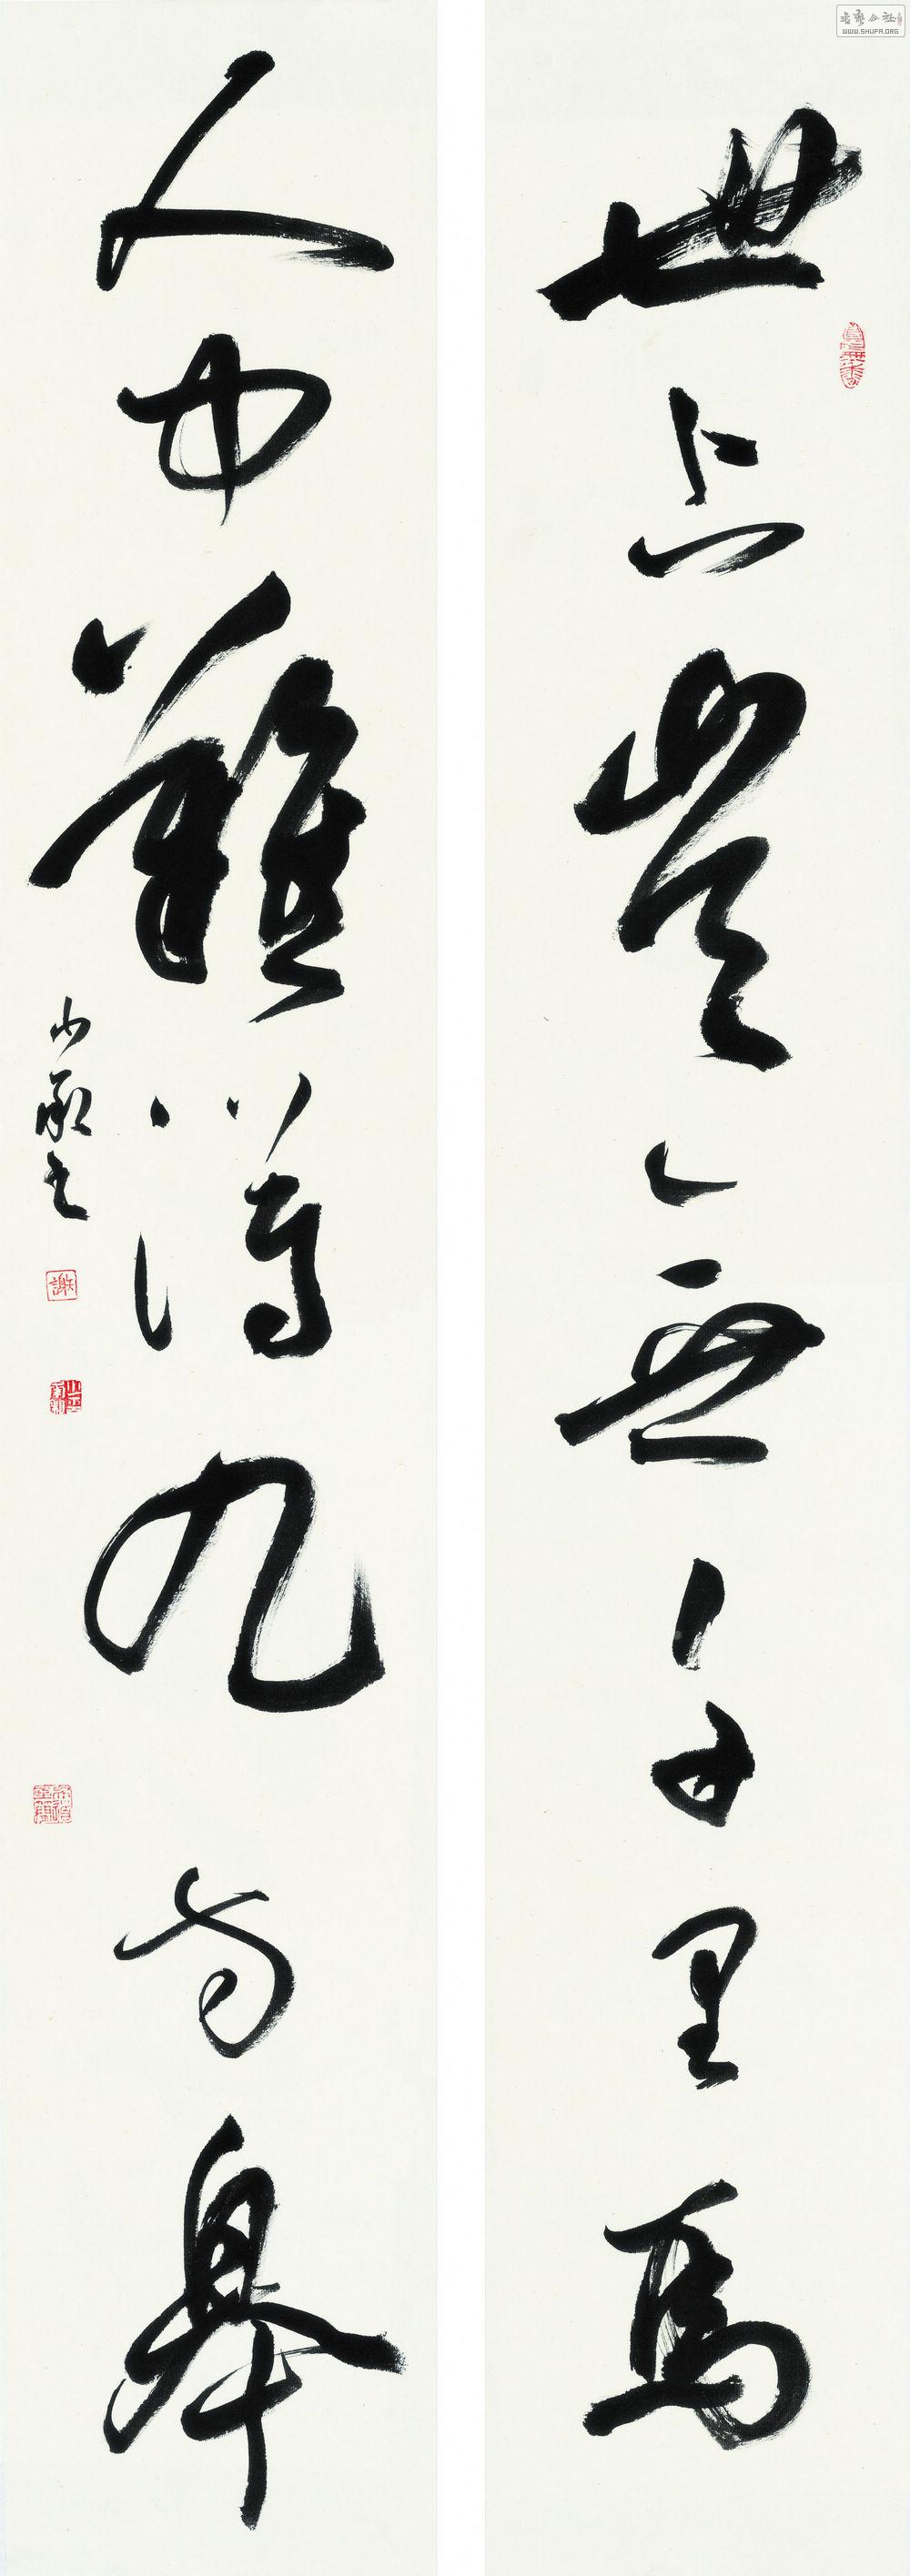 世上豈無千里馬
人中難得九方皋
小承書
謝
WWW.SHUFA.ORG